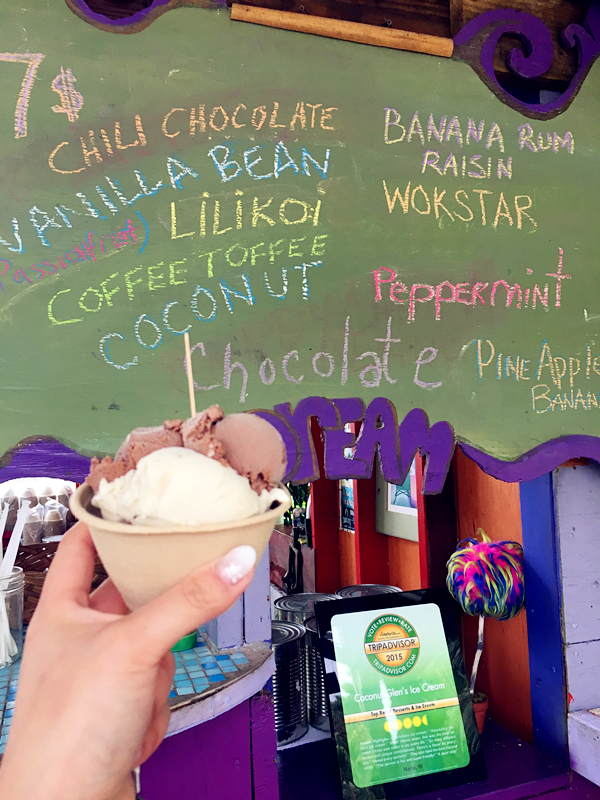 7$
CHILI CHOCOLATE
VANILLA BEAN
LiLiKOi
(Passionfruit)
COFFEE TOFFEE
COCONUT
Chocolate
BANANA RUM
RAISIN
WOKSTAR
PePPeRMiNt
PINEApple
BANANA
CREAM
VOTE•REVIEW•RATE
TRIPADVISOR
2015
TRIPADVISOR.COM
Coconut Glen's Ice Cream
Top Rated Desserts & Ice Cream